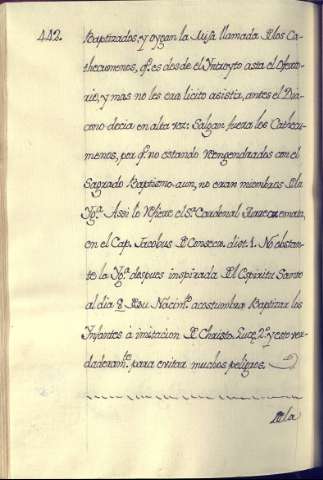 442.
Baptizados, y oygan la Misa llamada de los Ca-
thecumenos, q.e es desde el Yntroyto asta el Oferto-
rio, y mas no les era licito asistir, antes el Dia-
cono decia en alta voz: Salgan fuera los Cathecu-
menos, por q.e no estando reengendrados con el
Sagrado Baptismo aun, no eran miembros de la
Ygª Assi lo refiere el S.r Cardenal
en el Cap. Jacobus de Consecra. dist. 1. No obstan-
te la Ygª despues inspirada del Espiritu Santo
al dia 8 de su Nacim.to acostumbra Baptizar los
Ynfantes á imitacion de Christo. Luce 2.º y esto ver-
daderam.te para evitar muchos peligros.
De la